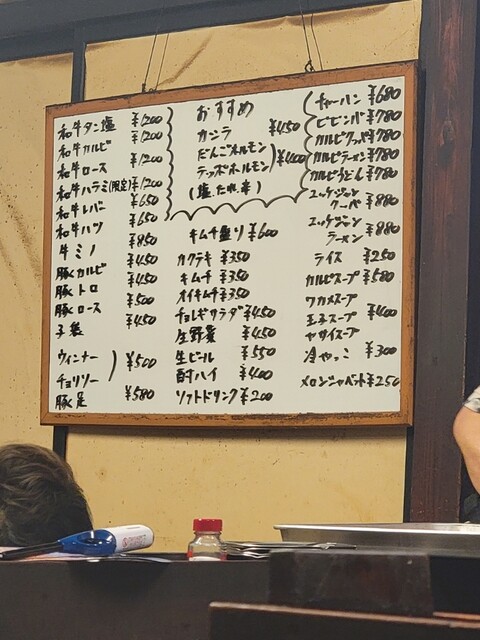 和牛タン塩 ¥1200
和牛カルビ ¥1200
和牛ロース ¥1200
和牛ハラミ(限定) ¥1200
和牛レバー ¥650
和牛ハツ ¥650
牛ミノ ¥850
豚カルビ ¥450
豚トロ ¥450
豚ロース ¥500
子袋 ¥450
ウィンナー
チョリソー ¥500
豚足 ¥580
おすすめ
カシラ ¥450
だんごホルモン
テッポーホルモン ¥400
(塩.たれ.辛)
キムチ盛り ¥600
カクテキ ¥350
キムチ ¥350
オイキムチ ¥350
チョレギサラダ ¥450
生野菜 ¥450
生ビール ¥550
酎ハイ ¥400
ソフトドリンク ¥200
チャーハン ¥680
ビビンバ ¥780
カルビクッパ ¥780
カルビラーメン ¥780
カルビうどん ¥780
ユッケジャン
クーパ ¥880
ユッケジャン
ラーメン ¥880
ライス ¥250
カルビスープ ¥580
ワカメスープ
玉子スープ ¥400
ヤサイスープ
冷やっこ ¥300
メロンシャーベット ¥250